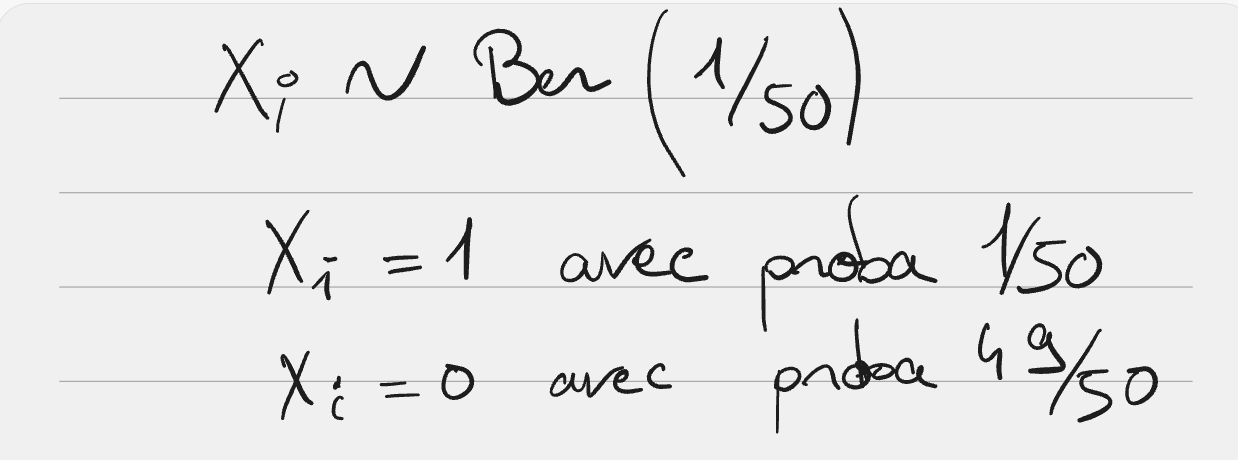 Xi ~ Ber (1/50)
Xi = 1 avec proba 1/50
Xi = 0 avec proba 49/50